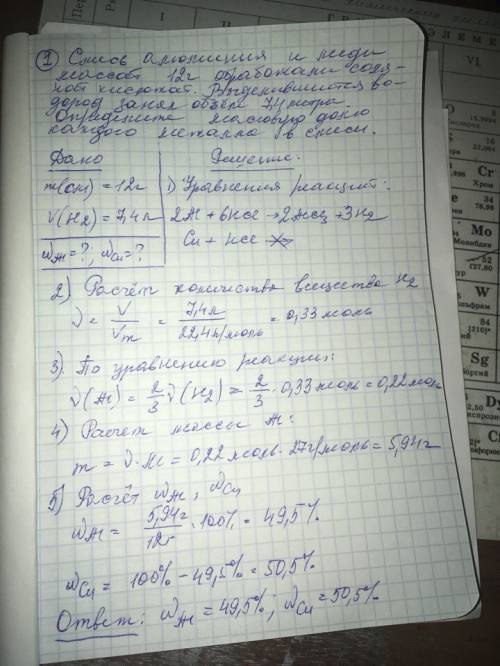 ① Смесь алюминия и меди
массой 12г обработали соля-
ной кислотой. Выделившийся во-
дород занял объём 7,4 литра.
Определите массовую долю
каждого металла в смеси.
Дано Решение:
m(см) = 12г 1) Уравнения реакций:
V(H₂) = 7,4л 2Al + 6HCl → 2AlCl₃ + 3H₂
ω Al = ?, ω Cu = ? Cu + HCl ↛
2) Расчёт количества вещества H₂
ν = V/Vm = 7,4л/22,4л/моль = 0,33 моль
3) По уравнению реакции:
ν(Al) = 2/3 ν(H₂) = 2/3 · 0,33моль = 0,22моль
4) Расчет массы Al:
m = ν · M = 0,22моль · 27г/моль = 5,94г
5) Расчёт ω Al, ω Cu
ω Al = 5,94г/12г · 100% = 49,5%
ω Cu = 100% - 49,5% = 50,5%
Ответ: ω Al = 49,5%; ω Cu = 50,5%
VI
Cr
Хром
Se
34
78,96
Mo
Молибден
52
127,60
W
Вольфрам
84
[210]
Sg